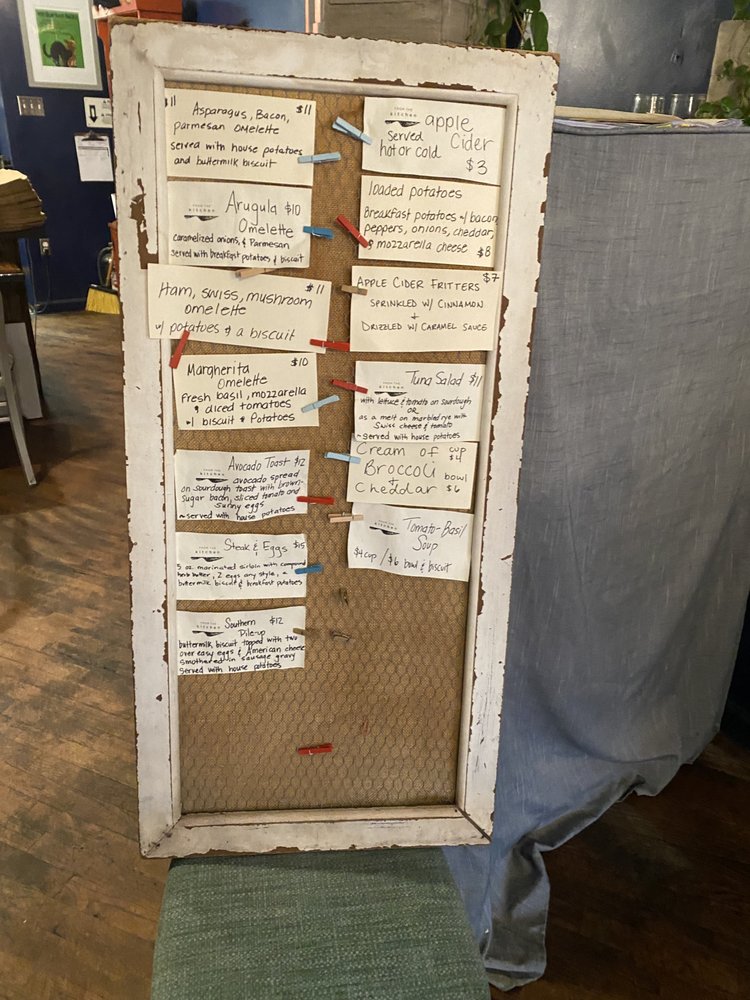 11
Asparagus, Bacon, $11
parmesan omelette
served with house potatoes
and buttermilk biscuit
FROM THE
kitchen
Arugula $10
Omelette
caramelized onions, & Parmesan
served with breakfast potatoes & biscuit
Ham, swiss, mushroom $11
omelette
w/ potatoes & a biscuit
Margherita $10
Omelette
fresh basil, mozzarella
& diced tomatoes
w/ biscuit & Potatoes
FROM THE
kitchen
Avocado Toast $12
avocado spread
on sourdough toast with brown-
sugar bacon, sliced tomato and
sunny eggs
~served with house potatoes
FROM THE
kitchen
Steak & Eggs $15
5 oz. marinated sirloin with compound
herb butter, 2 eggs any style, a
buttermilk biscuit & breakfast potatoes
FROM THE
kitchen
Southern $12
Pile-up
buttermilk biscuit topped with two
over easy eggs & American cheese
smothered in sausage gravy
served with house potatoes
FROM THE
kitchen
apple
Cider
served
hot or cold
$3
loaded potatoes
Breakfast potatoes w/ bacon
peppers, onions, cheddar,
& mozzarella cheese $8
Apple Cider Fritters $7
sprinkled w/ cinnamon
+
drizzled w/ caramel sauce
FROM THE
kitchen
Tuna Salad $11
with lettuce & tomato on sourdough
OR
as a melt on marbled rye with
Swiss cheese & tomato
~served with house potatoes
Cream of cup $4
Broccoli bowl
& Cheddar $6
FROM THE
kitchen
Tomato-Basil
Soup
$4 cup / $6 bowl & biscuit